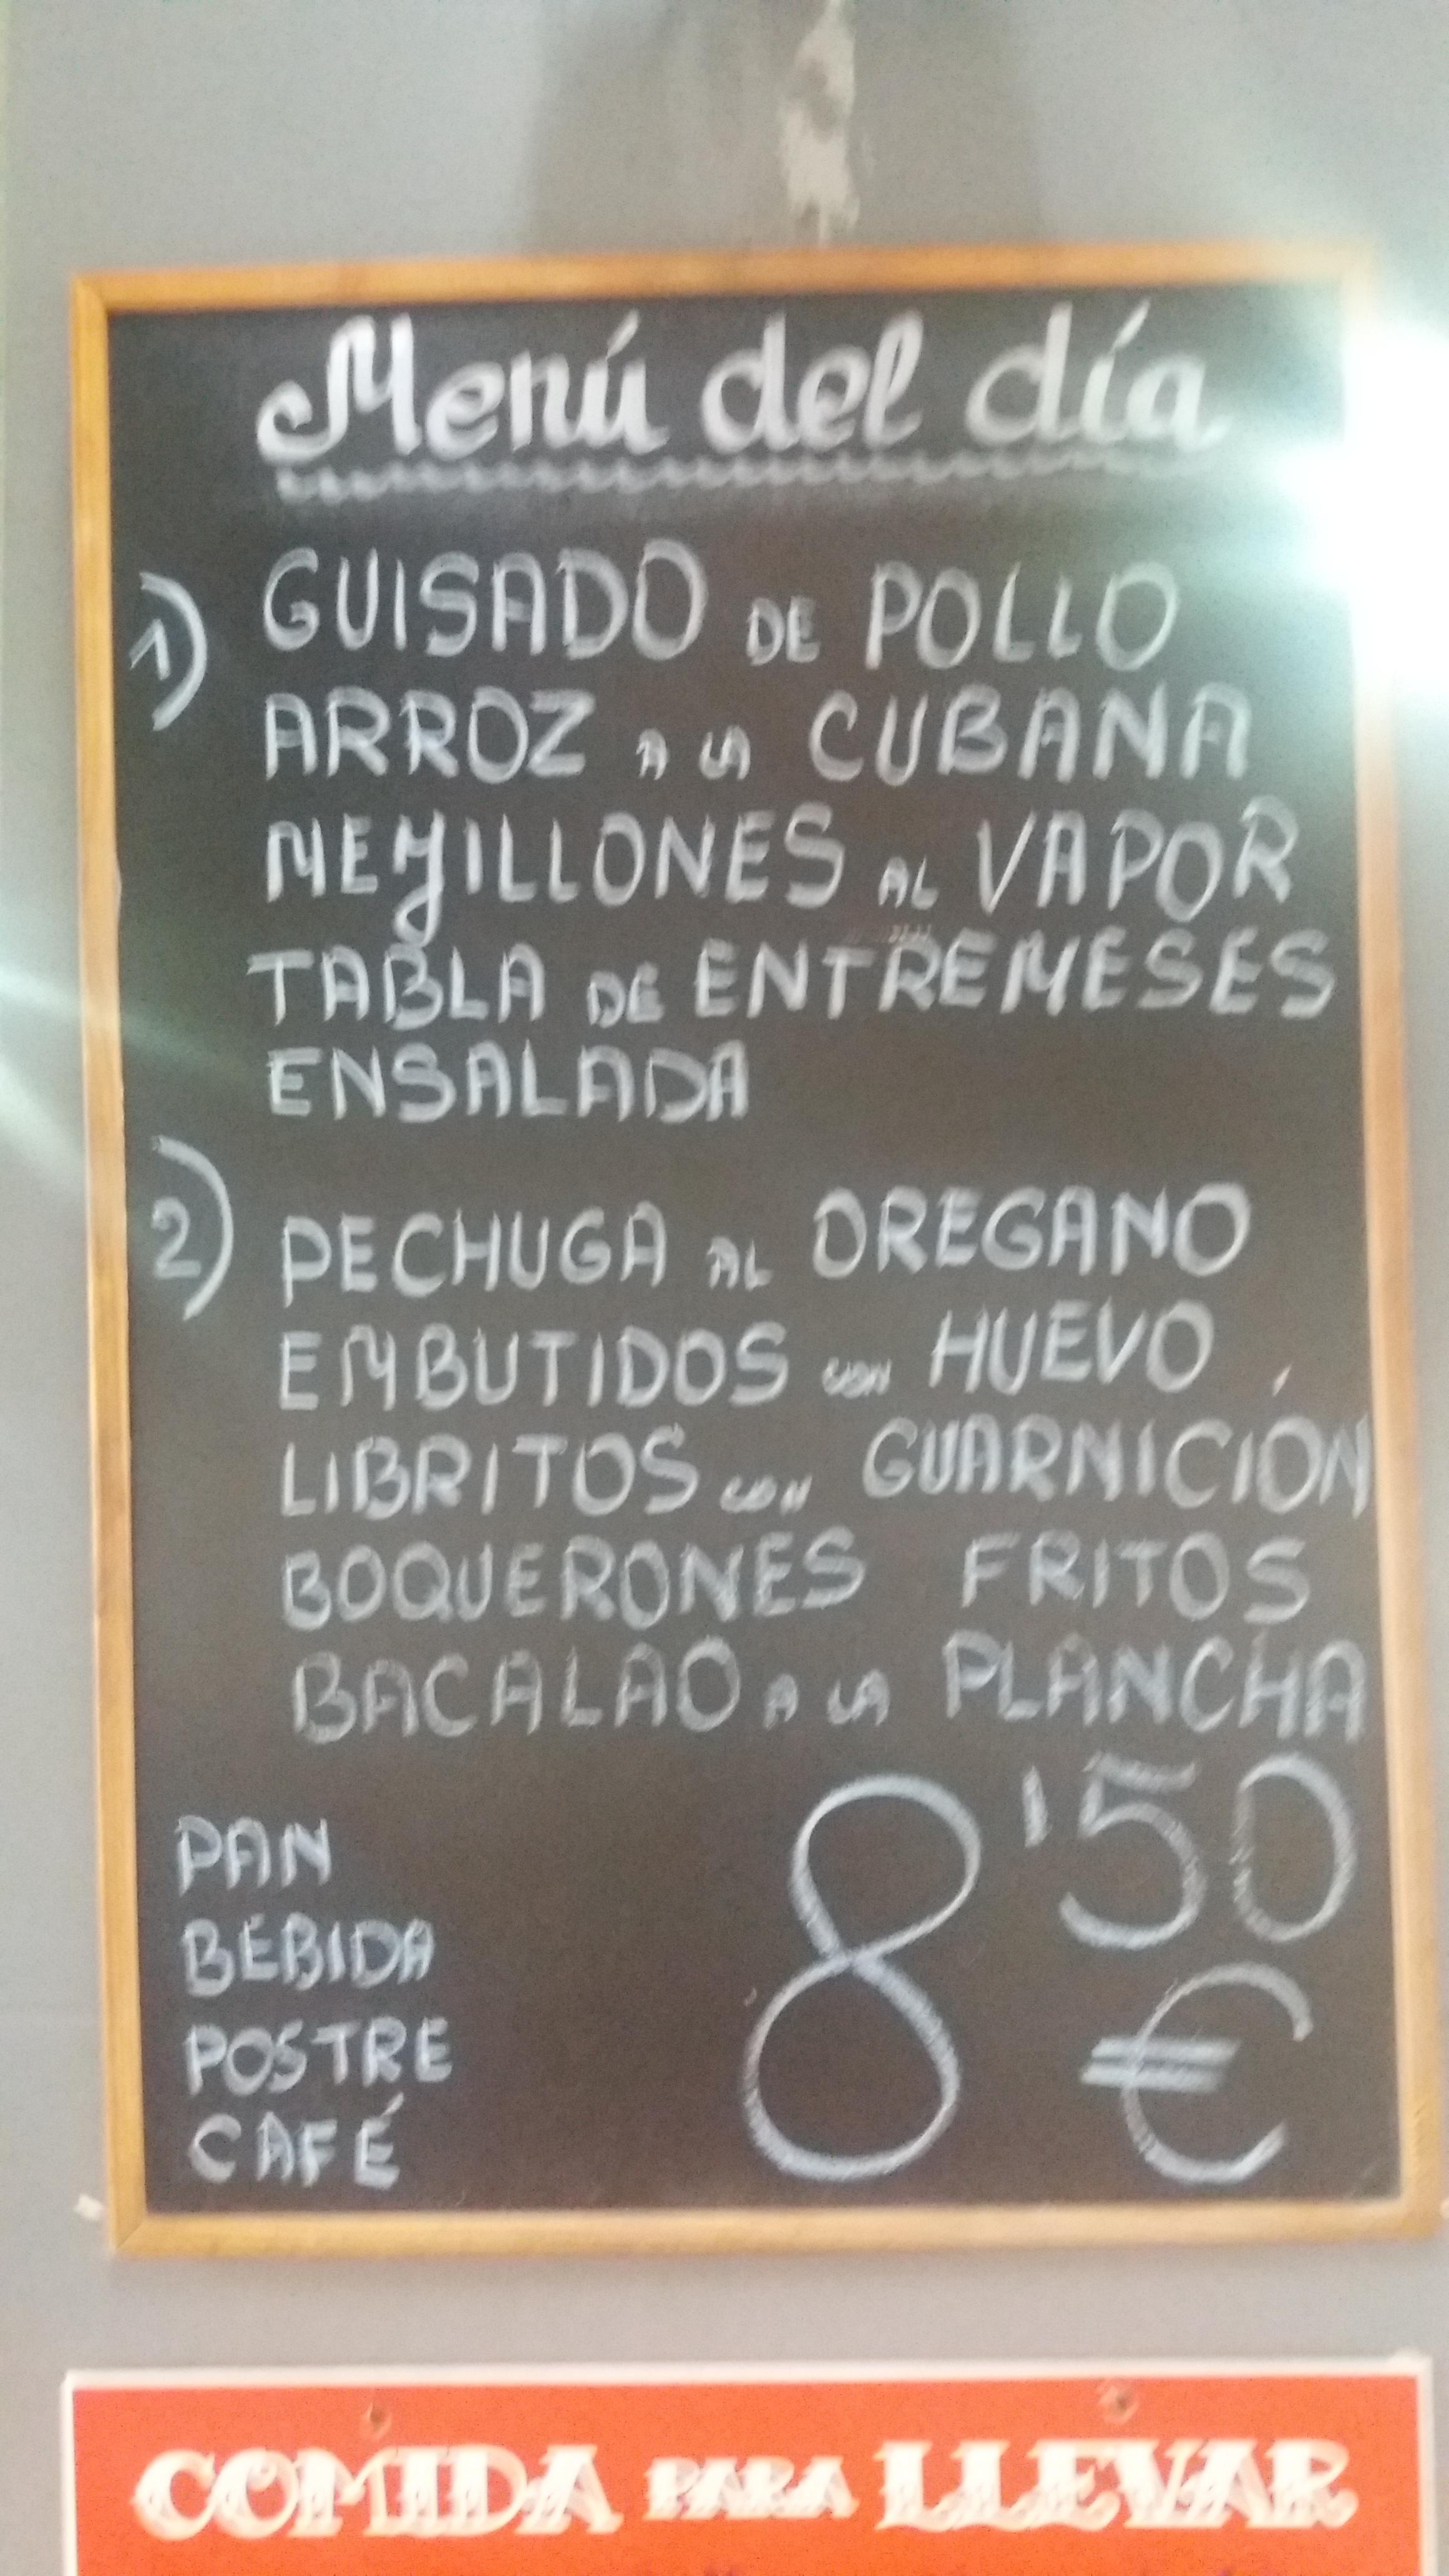 Menú del día
1) GUISADO DE POLLO
ARROZ A LA CUBANA
MEJILLONES AL VAPOR
TABLA DE ENTREMESES
ENSALADA
2) PECHUGA AL OREGANO
EMBUTIDOS CON HUEVO
LIBRITOS CON GUARNICIÓN
BOQUERONES FRITOS
BACALAO A LA PLANCHA
PAN
BEBIDA
POSTRE
CAFÉ
8'50 €
COMIDA PARA LLEVAR